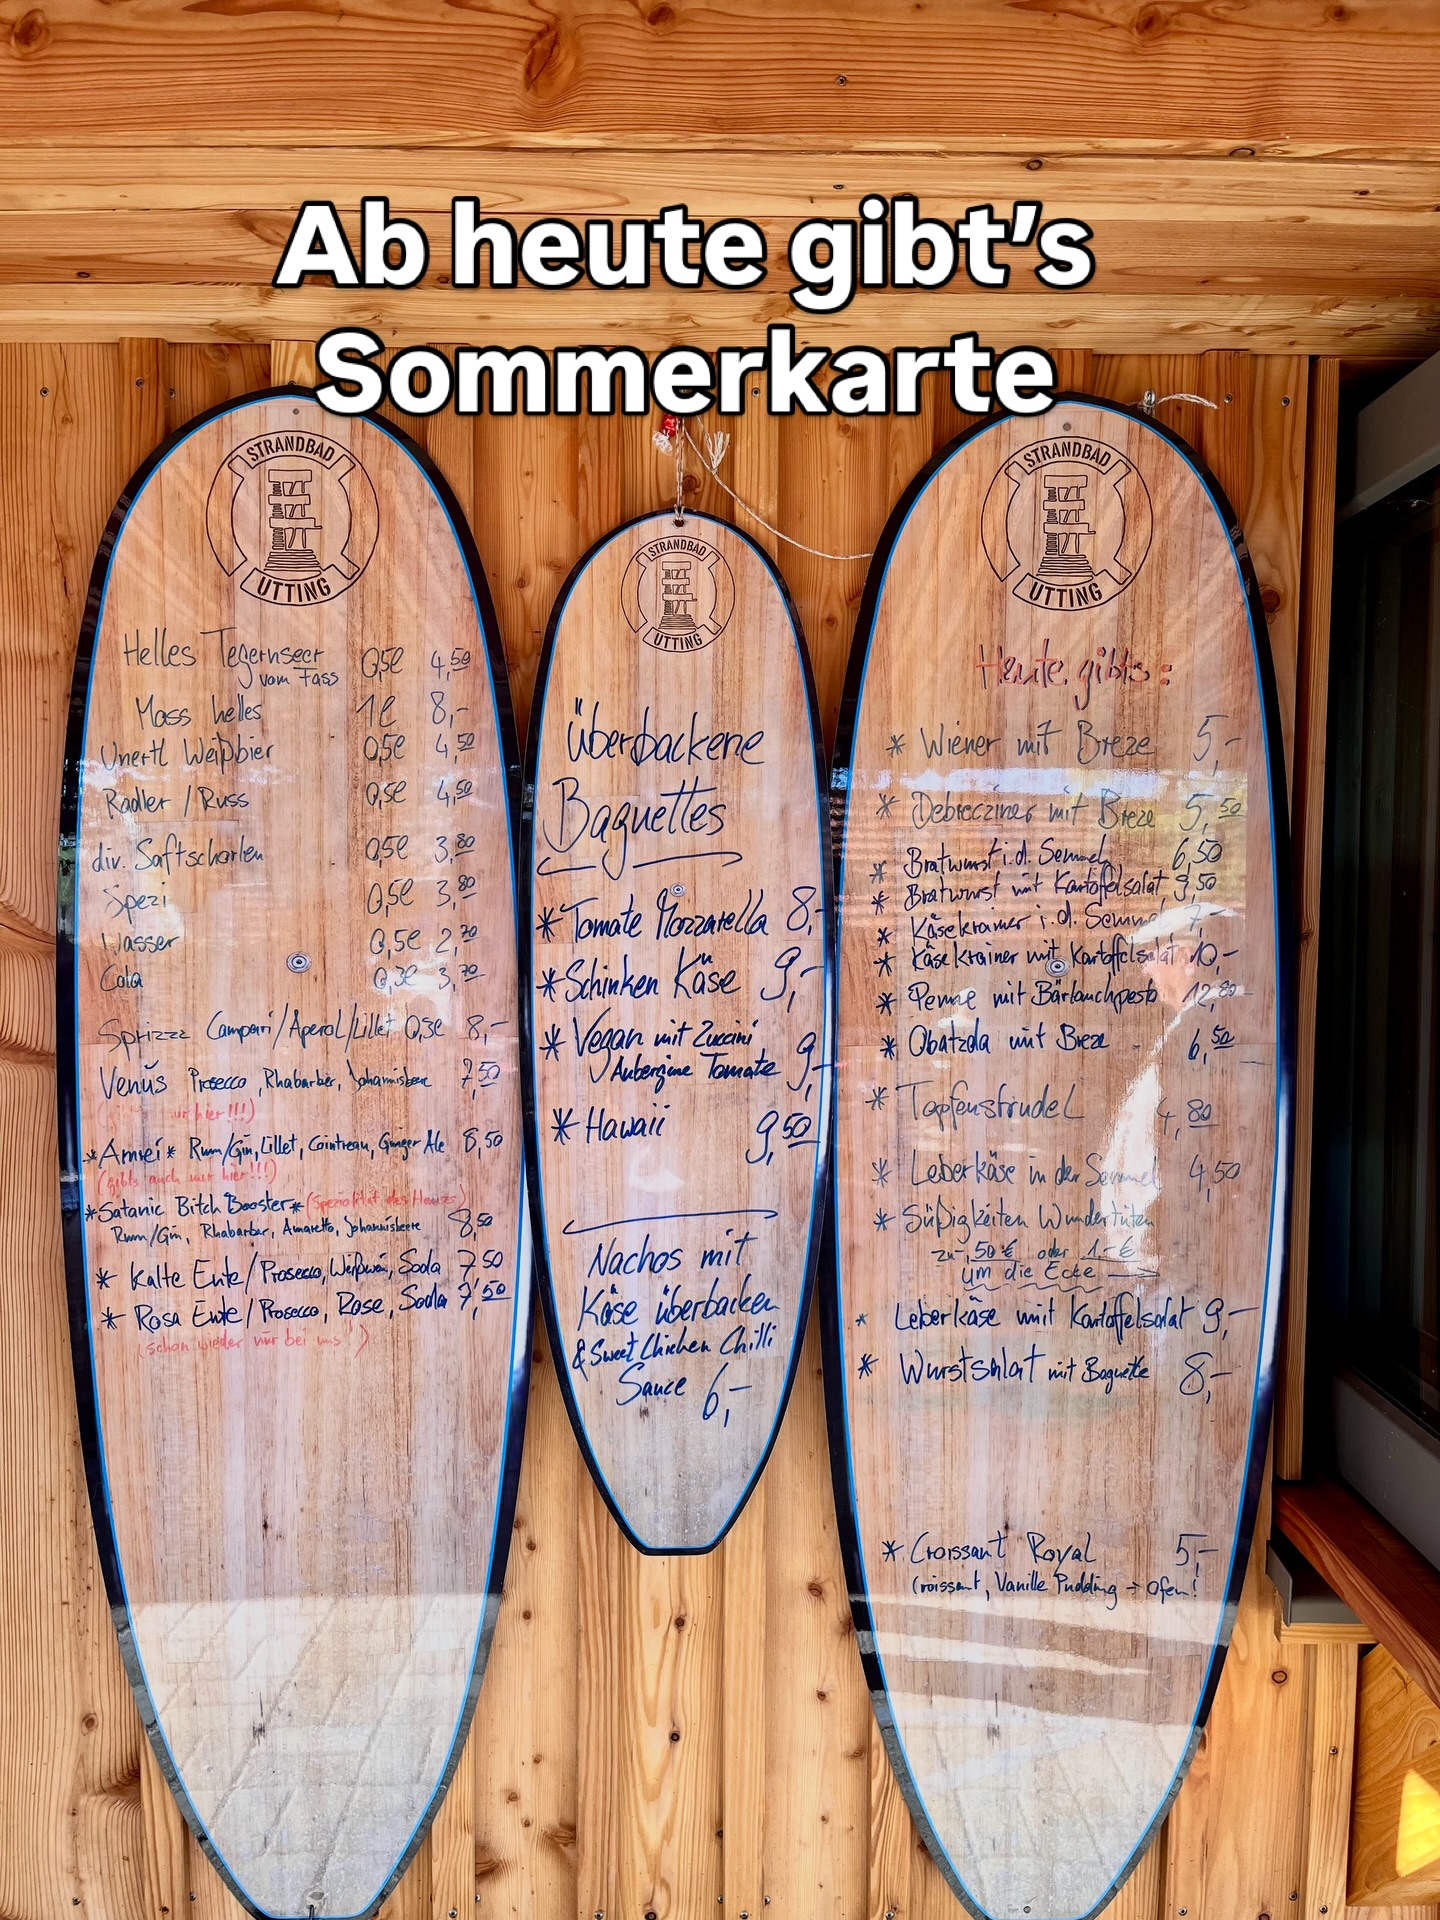 Ab heute gibt's
Sommerkarte
STRANDBAD
UTTING
Helles Tegernseer 0,5l 4,50
vom Fass
Mass helles 1l 8,-
Unertl Weißbier 0,5l 4,50
Radler / Russ 0,5l 4,50
div. Saftschorlen 0,5l 3,80
Spezi 0,5l 3,80
Wasser 0,5l 2,70
Cola 0,3l 3,70
Sprizzz Campari/Aperol/Lillet 0,3l 8,-
Venus Prosecco, Rhabarber, Johannisbeere 7,50
hier!!!)
*Amrei* Rum/Gin, Lillet, Cointreau, Ginger Ale 8,50
(gibts auch nur hier!!!)
*Satanic Bitch Booster* (Spezialität des Hauses)
Rum/Gin, Rhabarber, Amaretto, Johannisbeere 8,50
* Kalte Ente/Prosecco, Weißwein, Soda 7,50
* Rosa Ente/Prosecco, Rose, Soda 7,50
(schon wieder nur bei uns!)
STRANDBAD
UTTING
Überbackene
Baguettes
* Tomate Mozzarella 8,-
* Schinken Käse 9,-
* Vegan mit Zuccini
Aubergine Tomate 9,-
* Hawaii 9,50
Nachos mit
Käse überbacken
& Sweet Chicken Chilli
Sauce 6,-
STRANDBAD
UTTING
Heute gibts:
* Wiener mit Breze 5,-
* Debrecziner mit Breze 5,50
* Bratwurst i.d. Semmel 6,50
* Bratwurst mit Kartoffelsalat 9,50
* Käsekrainer i.d. Semmel 7,-
* Käsekrainer mit Kartoffelsalat 10,-
* Penne mit Bärlauchpesto 12,80
* Obatzda mit Breze 6,50
* Topfenstrudel 4,80
* Leberkäse in der Semmel 4,50
* Süßigkeiten Wundertüten
zu -,50 € oder 1,- €
um die Ecke →
* Leberkäse mit Kartoffelsalat 9,-
* Wurstsalat mit Baguette 8,-
* Croissant Royal 5,-
Croissant, Vanille Pudding → Ofen!